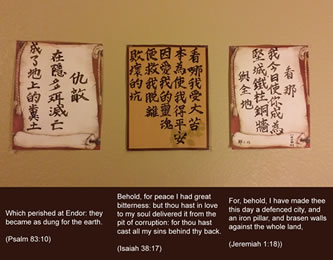 仇敵
在隱多珥滅亡
成了地上的糞土
看哪我受大苦
本為使我得平安
因愛我的靈魂
便救我脫離
敗壞的坑
看那
我今日使你成為
堅城鐵柱銅牆
與全地
Which perished at Endor: they
became as dung for the earth.
(Psalm 83:10)
Behold, for peace I had great
bitterness: but thou hast in love
to my soul delivered it from the
pit of corruption: for thou hast
cast all my sins behind thy back.
(Isaiah 38:17)
For, behold, I have made thee
this day a defenced city, and
an iron pillar, and brasen walls
against the whole land,
(Jeremiah 1:18))